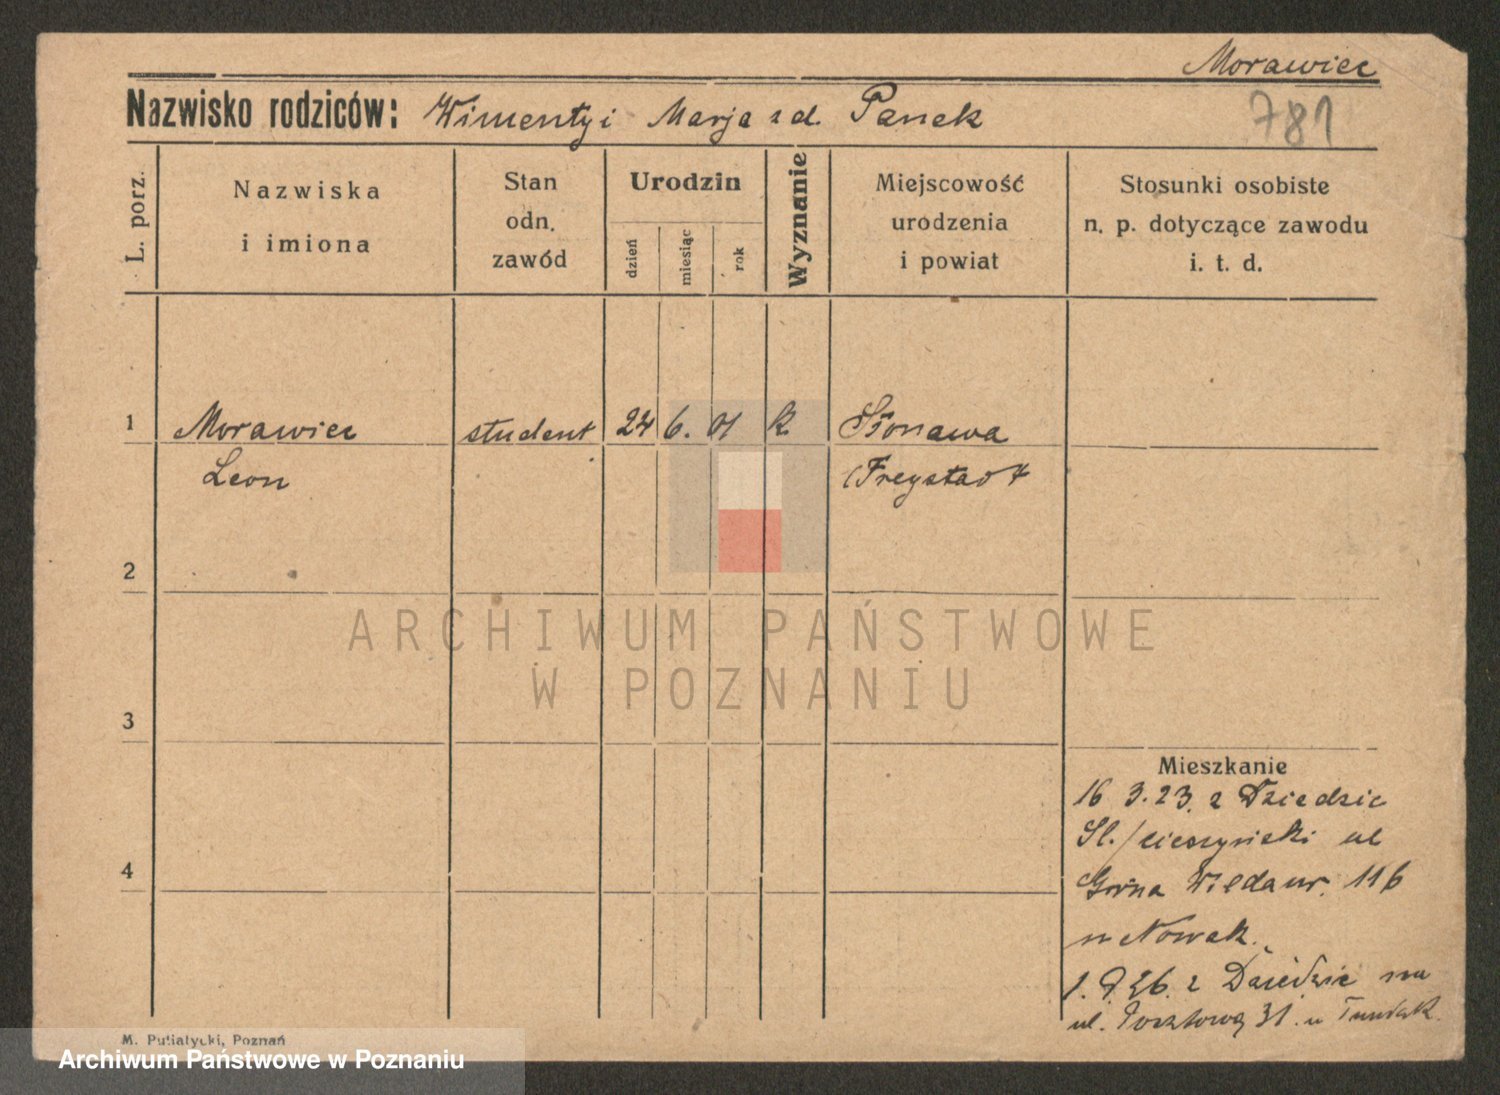 Morawiec
Nazwisko rodziców: Wimenty i Marja z d. Panek
781
L. porz.
Nazwiska
i imiona
Stan
odn.
zawód
Urodzin
dzień
miesiąc
rok
Wyznanie
Miejscowość
urodzenia
i powiat
Stosunki osobiste
n. p. dotyczące zawodu
i. t. d.
1
Morawiec student 24 6. 01 k
Leon (Freystadt
2
ARCHIWUM PAŃSTWOWE
W POZNANIU
3
Mieszkanie
16 3.23. z Dziedzic
Sl./cieszyński ul
4
Górna Wilda nr. 116
u Nowak.
1. 26. z Dziedzic na
ul. Pocztową 31. u
M. Putiatycki, Poznań
Archiwum Państwowe w Poznaniu